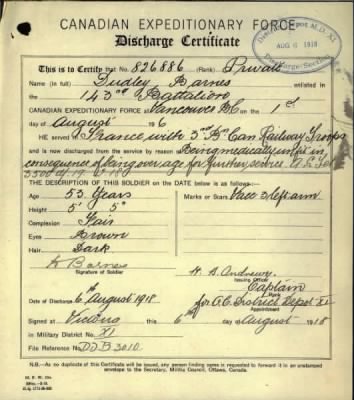 CANADIAN EXPEDITIONARY FORCE
Discharge Certificate
District Depot M.D. XI
AUG 6 1918
Discharge Section
This is to Certify that No. 826886 (Rank) Private
Name (in full) Dudley Barnes enlisted in
the 143rd Battalion
CANADIAN EXPEDITIONARY FORCE at Vancouver BC on the 1st
day of August 1916
HE served in France with 3rd Bn Can Railway Troops
and is now discharged from the service by reason of Being medically unfit in
consequence of being overage for further service
THE DESCRIPTION OF THIS SOLDIER on the DATE below is as follows:
Age 53 Years
Marks or Scars Vacc 3 left arm
Height 5' 5"
Complexion Fair
Eyes Brown
Hair Dark
D Barnes
Signature of Soldier
H. B. Andrews
Issuing Officer
Captain
Rank
Date of Discharge 6th August 1918
for O.C. District Depot XI
Signed at Victoria this 6th day of August 1918
in Military District No. XI
File Reference No. DDB 3010
N.B.—As no duplicate of this Certificate will be issued, any person finding same is requested to forward it in an unstamped
envelope to the Secretary, Militia Council, Ottawa, Canada.